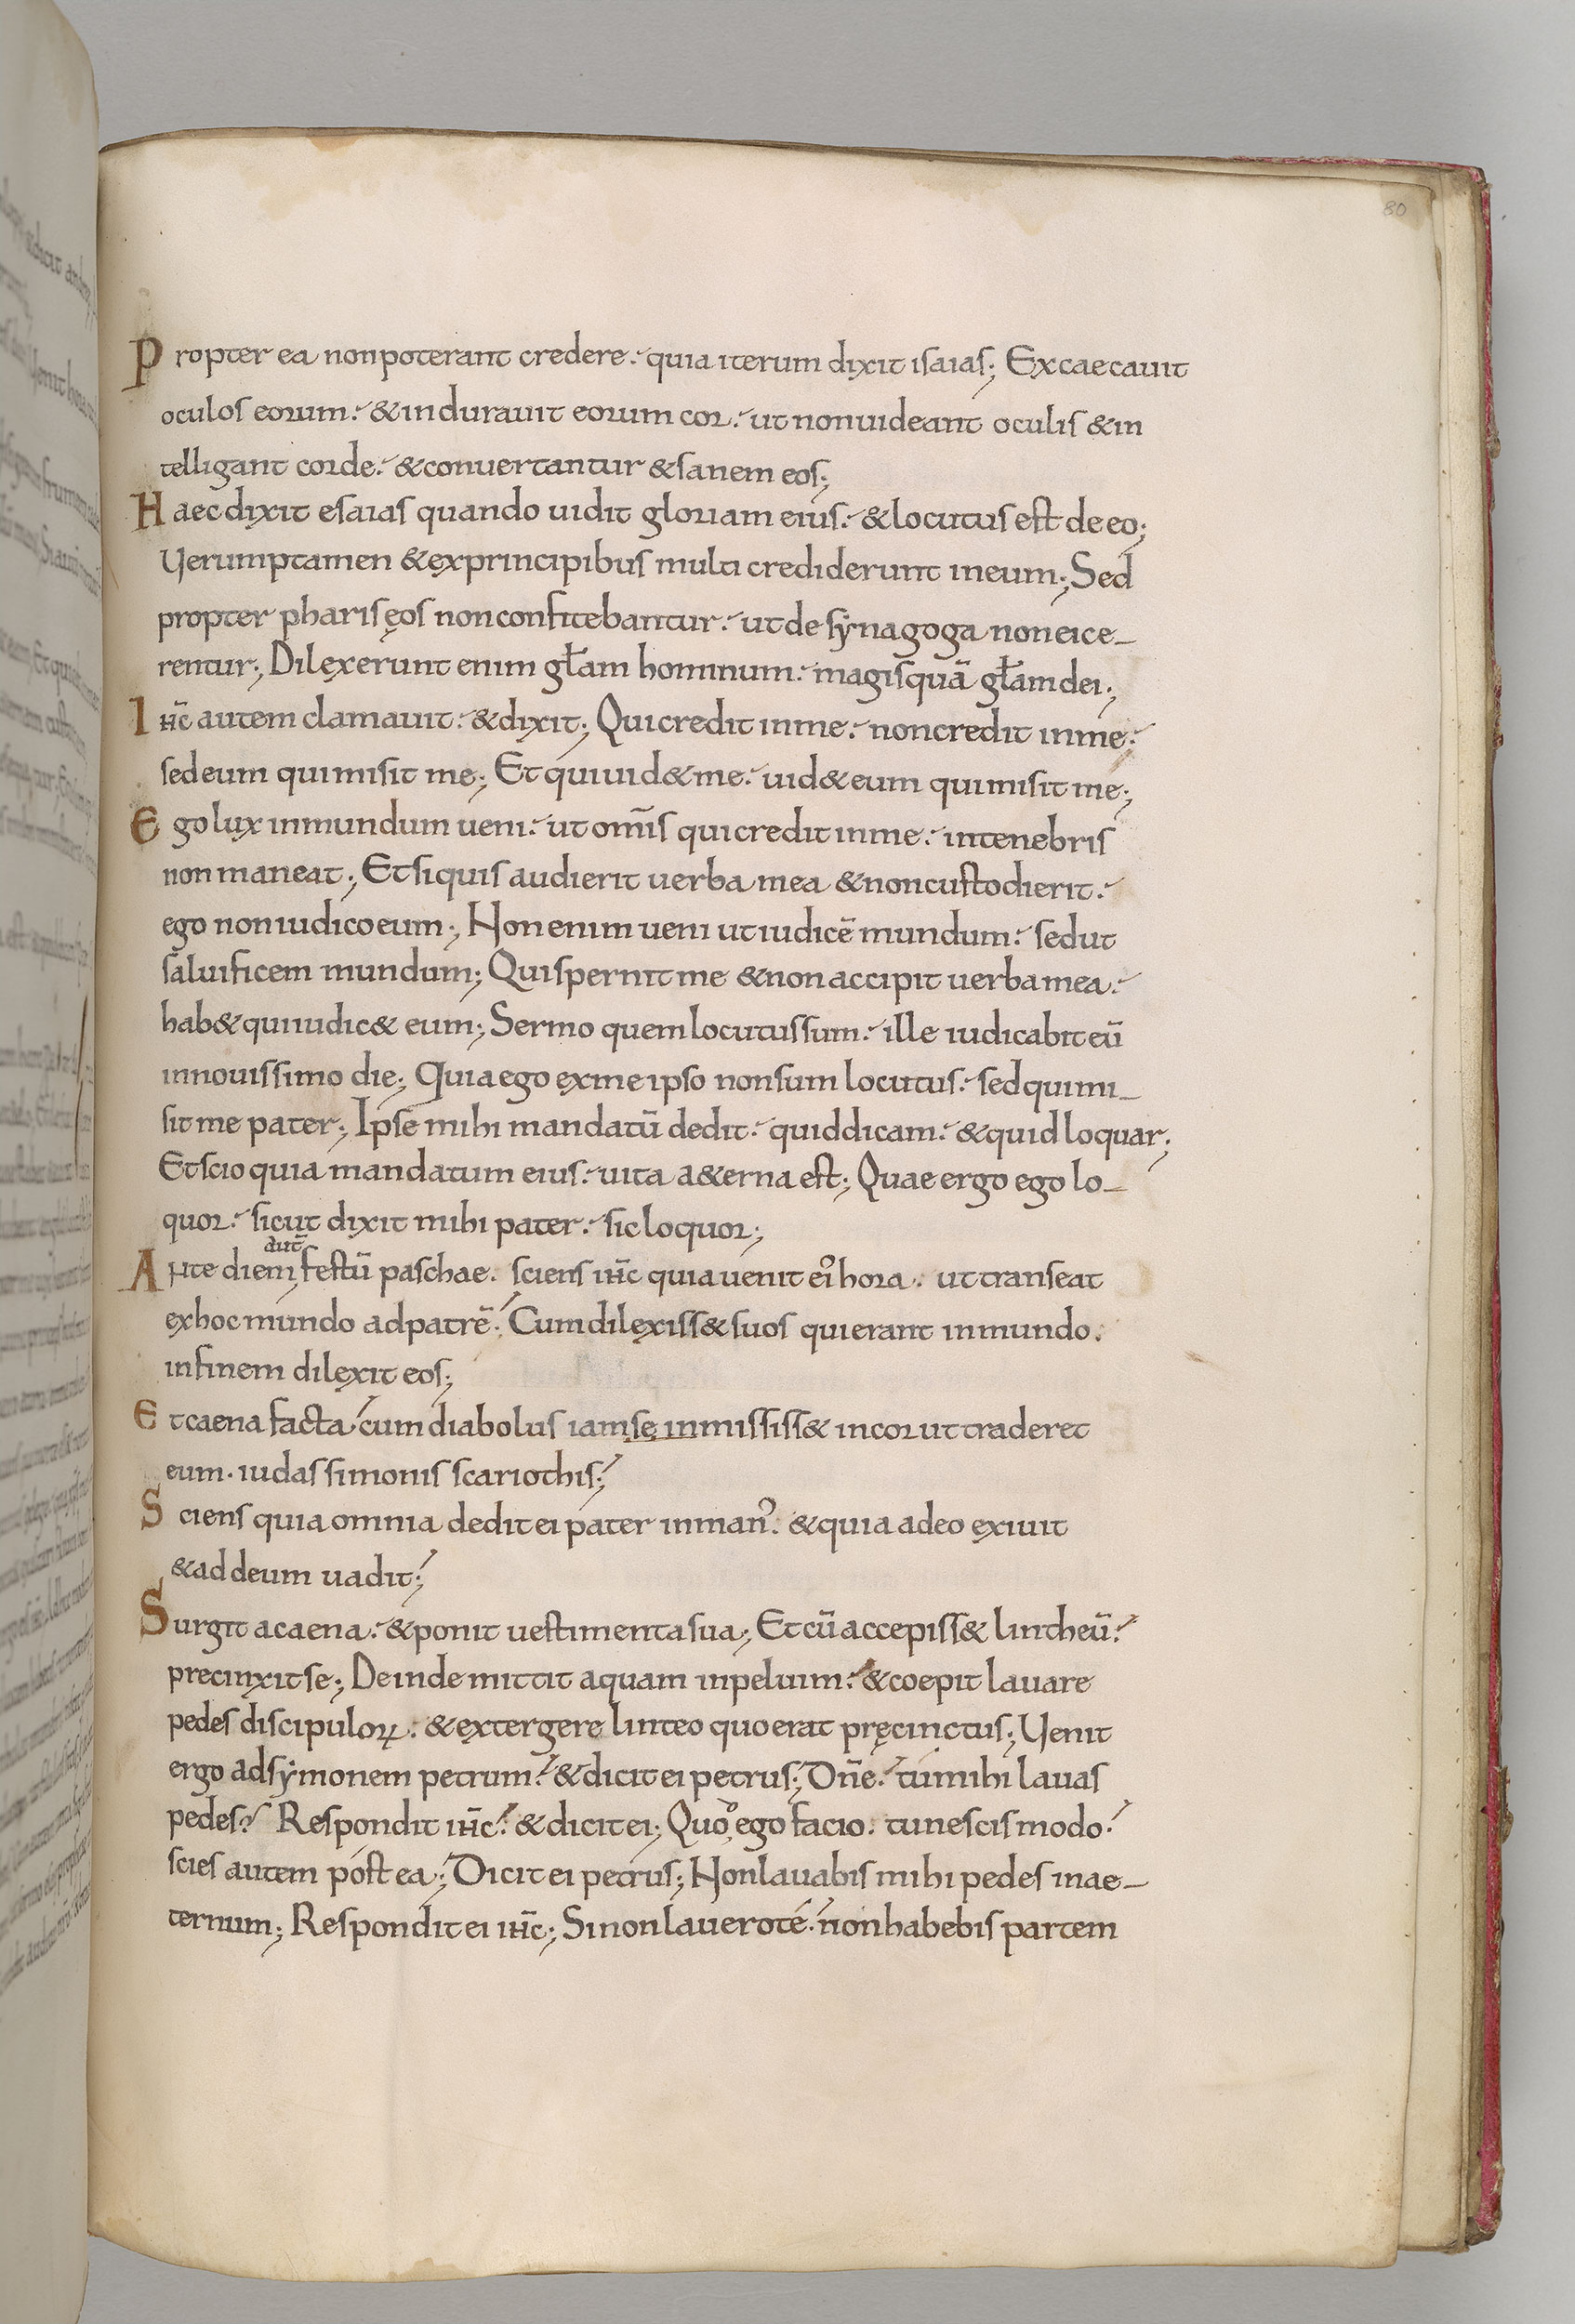 80
Propter ea non poterant credere. quia iterum dixit isaias; Excaecauit
oculos eorum. & indurauit eorum cor. ut non uideant oculis & in
telligant corde. & conuertantur & sanem eos;
Haec dixit esaias quando uidit gloriam eius. & locutus est de eo;
Uerumptamen & ex principibus multi crediderunt in eum; Sed
propter pharisęos non confitebantur. ut de sẏnagoga non eice_
rentur; Dilexerunt enim gƚam hominum. magis quā gƚam dei;
Ihc̄ autem clamauit. & dixit; Qui credit in me. non credit in me.
sed eum qui misit me; Et qui uid& me. uid& eum qui misit me;
Ego lux in mundum ueni. ut om̄s qui credit in me. in tenebris
non maneat; Et si quis audierit uerba mea & non custodierit.
ego non iudico eum; Non enim ueni ut iudicē mundum. sed ut
saluificem mundum; Qui spernit me & non accipit uerba mea.
hab& qui iudic& eum; Sermo quem locutus sum. ille iudicabit eū
in nouissimo die; Quia ego ex me ipso non sum locutus. sed qui mi_
sit me pater; Ipse mihi mandatū dedit. quid dicam. & quid loquar;
Et scio quia mandatum eius. uita a&erna est; Quae ergo ego lo_
quor. sicut dixit mihi pater. sic loquor;
aut̄
Ante diem, festū paschae. sciens ihc̄ quia uenit ei hora. ut transeat
ex hoc mundo ad patrē. Cum dilexiss& suos qui erant in mundo.
in finem dilexit eos;
Et caena facta. cum diabolus iam se inmississ& in cor ut traderet
eum. iudas simonis scariothis;
Sciens quia omnia dedit ei pater in man᾿. & quia a deo exiuit
& ad deum uadit;
Surgit a caena. & ponit uestimenta sua; Et cū accepiss& lintheū.
precinxit se; Deinde mittit aquam in peluim. & coepit lauare
pedes discipuloꝝ. & extergere linteo quo erat pręcinctus; Uenit
ergo ad sẏmonem petrum. & dicit ei petrus; Dn̄e. tu mihi lauas
pedes? Respondit ihc̄. & dicit ei; Quo᾿ ego facio. tu nescis modo.
scies autem post ea; Dicit ei petrus; Non lauabis mihi pedes in ae_
ternum; Respondit ei ihc̄; Si non lauero te. non habebis partem